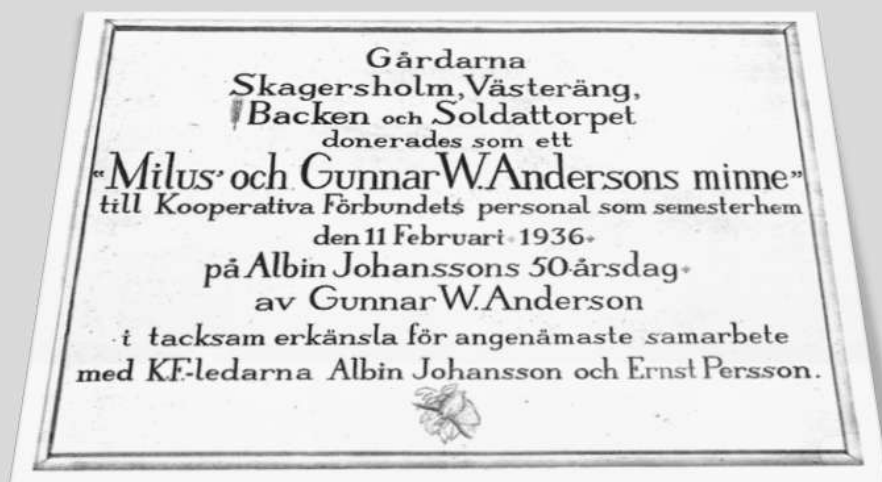 Gårdarna
Skagersholm, Västeräng,
Backen och Soldattorpet
donerades som ett
"Milus' och Gunnar W. Andersons minne"
till Kooperativa Förbundets personal som semesterhem
den 11 Februari 1936
på Albin Johanssons 50-årsdag
av Gunnar W. Anderson
i tacksam erkänsla för angenämaste samarbete
med K.F.-ledarna Albin Johansson och Ernst Persson.